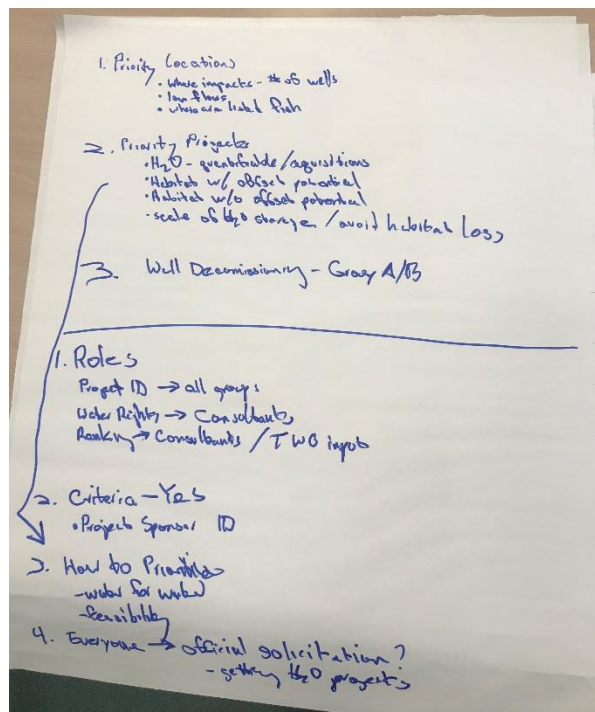 1. Priority Locations
• where impacts - # of wells
• low flows
• where are listed fish
2. Priority Projects
• H2O - quantifiable/aquisitions
• Habitat w/ offset potential
• Habitat w/o offset potential
• scale of H2O storage / avoid habitat loss
3. Well Decomissioning - Group A/B
1. Roles
Project ID → all groups
Water Rights → Consultants
Ranking → Consultants / TWG input
2. Criteria - Yes
• Project Sponsor ID
3. How to Prioritize
- water for water
- feasibility
4. Everyone → official solicitation?
- getting H2O projects